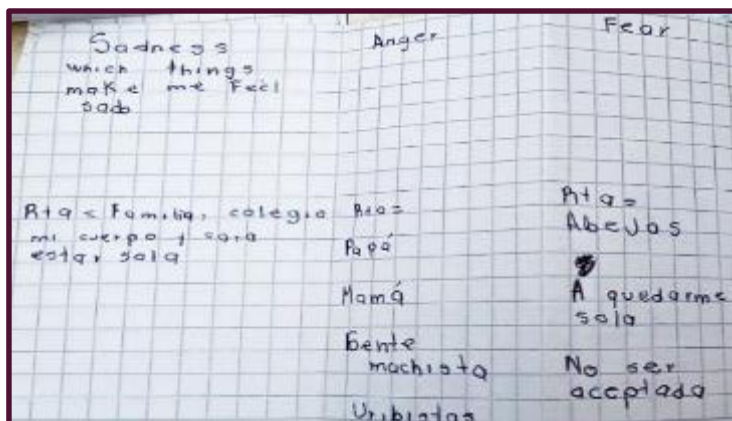 Sadness
which things
make me Feel
sad
Rta = Familia, colegio
mi cuerpo y cara
estar sola
Anger
Rta=
Papá
Mamá
Gente
machista
Uribistas
Fear
Rta=
Abejas
A quedarme
sola
No ser
aceptada